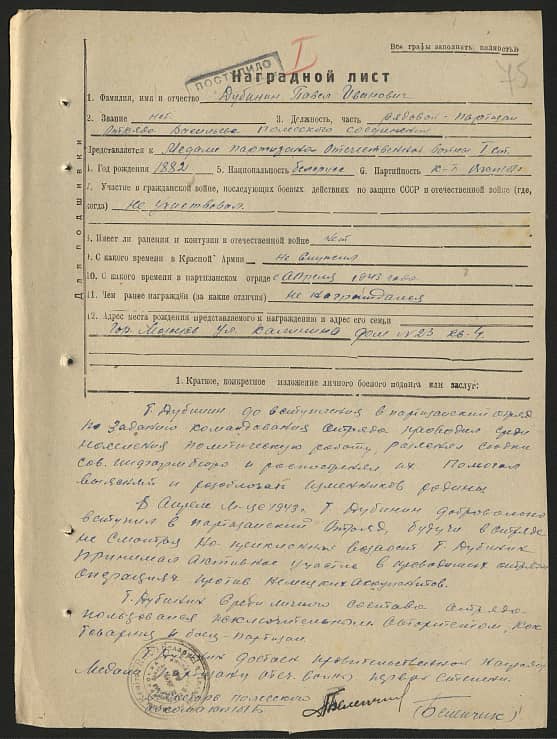 Все графы заполнять полностью
ПОСТУПИЛО
I
75
Наградной лист
1. Фамилия, имя и отчество Дубинин Павел Иванович
2. Звание нет 3. Должность, часть рядовой-партизан
отряда Васильева Полесского соединения
Представляется к Медали партизана Отечественной войны I ст.
4. Год рождения 1882 5. Национальность белорус 6. Партийность к-т
7. Участие в гражданской войне, последующих боевых действиях по защите СССР и отечественной войне (где,
когда) Не участвовал
8. Имеет ли ранения и контузии в отечественной войне Нет
9. С какого времени в Красной Армии не служил
10. С какого времени в партизанском отряде с апреля 1943 года
11. Чем ранее награждён (за какие отличия) Не награждался
12. Адрес места рождения представляемого к награждению и адрес его семьи
Гор. ул. Калинина дом №23 кв-4.
Для подшивки
1. Краткое, конкретное изложение личного боевого подвига или заслуг:
Т. Дубинин до вступления в партизанский отряд
по заданию командования отряда проводил среди
населения политическую работу, сводки
сов. информбюро и их. Помогал
и изменников родины
В Апреле м-це 1943г Т. Дубинин добровольно
вступил в партизанский отряд, будучи в отряде
не смотря на преклонный возраст Т. Дубинин
принимал активное участие в отрядом
операциях против немецких оккупантов.
Т. Дубинин среди личного состава отряда
пользовался исключительным авторитетом, как
товарищ и боец-партизан.
Т. Дубинин достоин правительственной награды
Медали Партизану отеч. войны первой степени.
Полесского